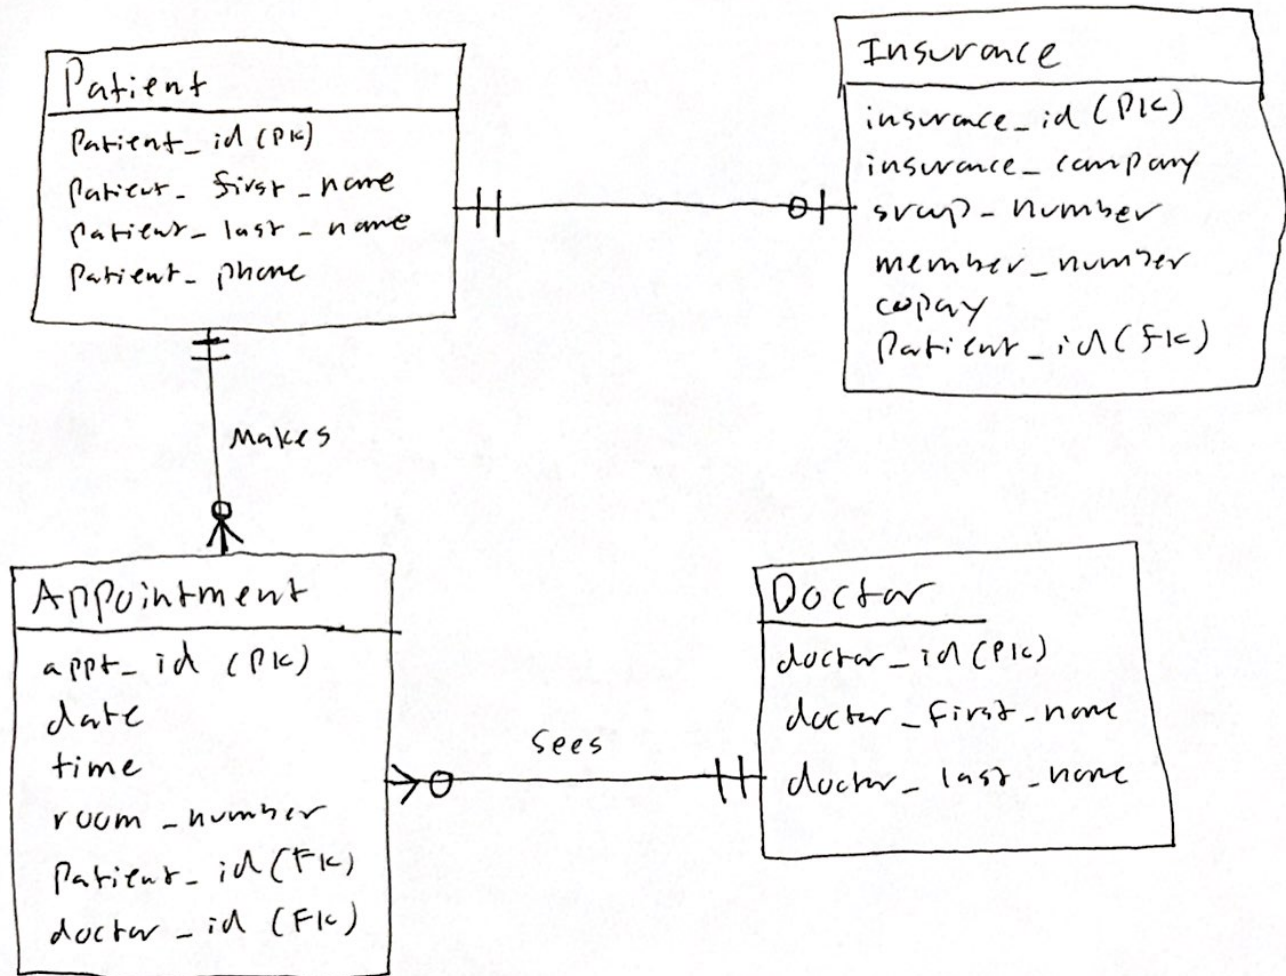 Patient
Patient_id (PK)
patient_first_name
patient_last_name
patient_phone
Insurance
insurance_id (PK)
insurance_company
group_number
member_number
copay
Patient_id (FK)
Makes
Appointment
appt_id (PK)
date
time
room_number
Patient_id (FK)
doctor_id (FK)
Sees
Doctor
doctor_id (PK)
doctor_first_name
doctor_last_name